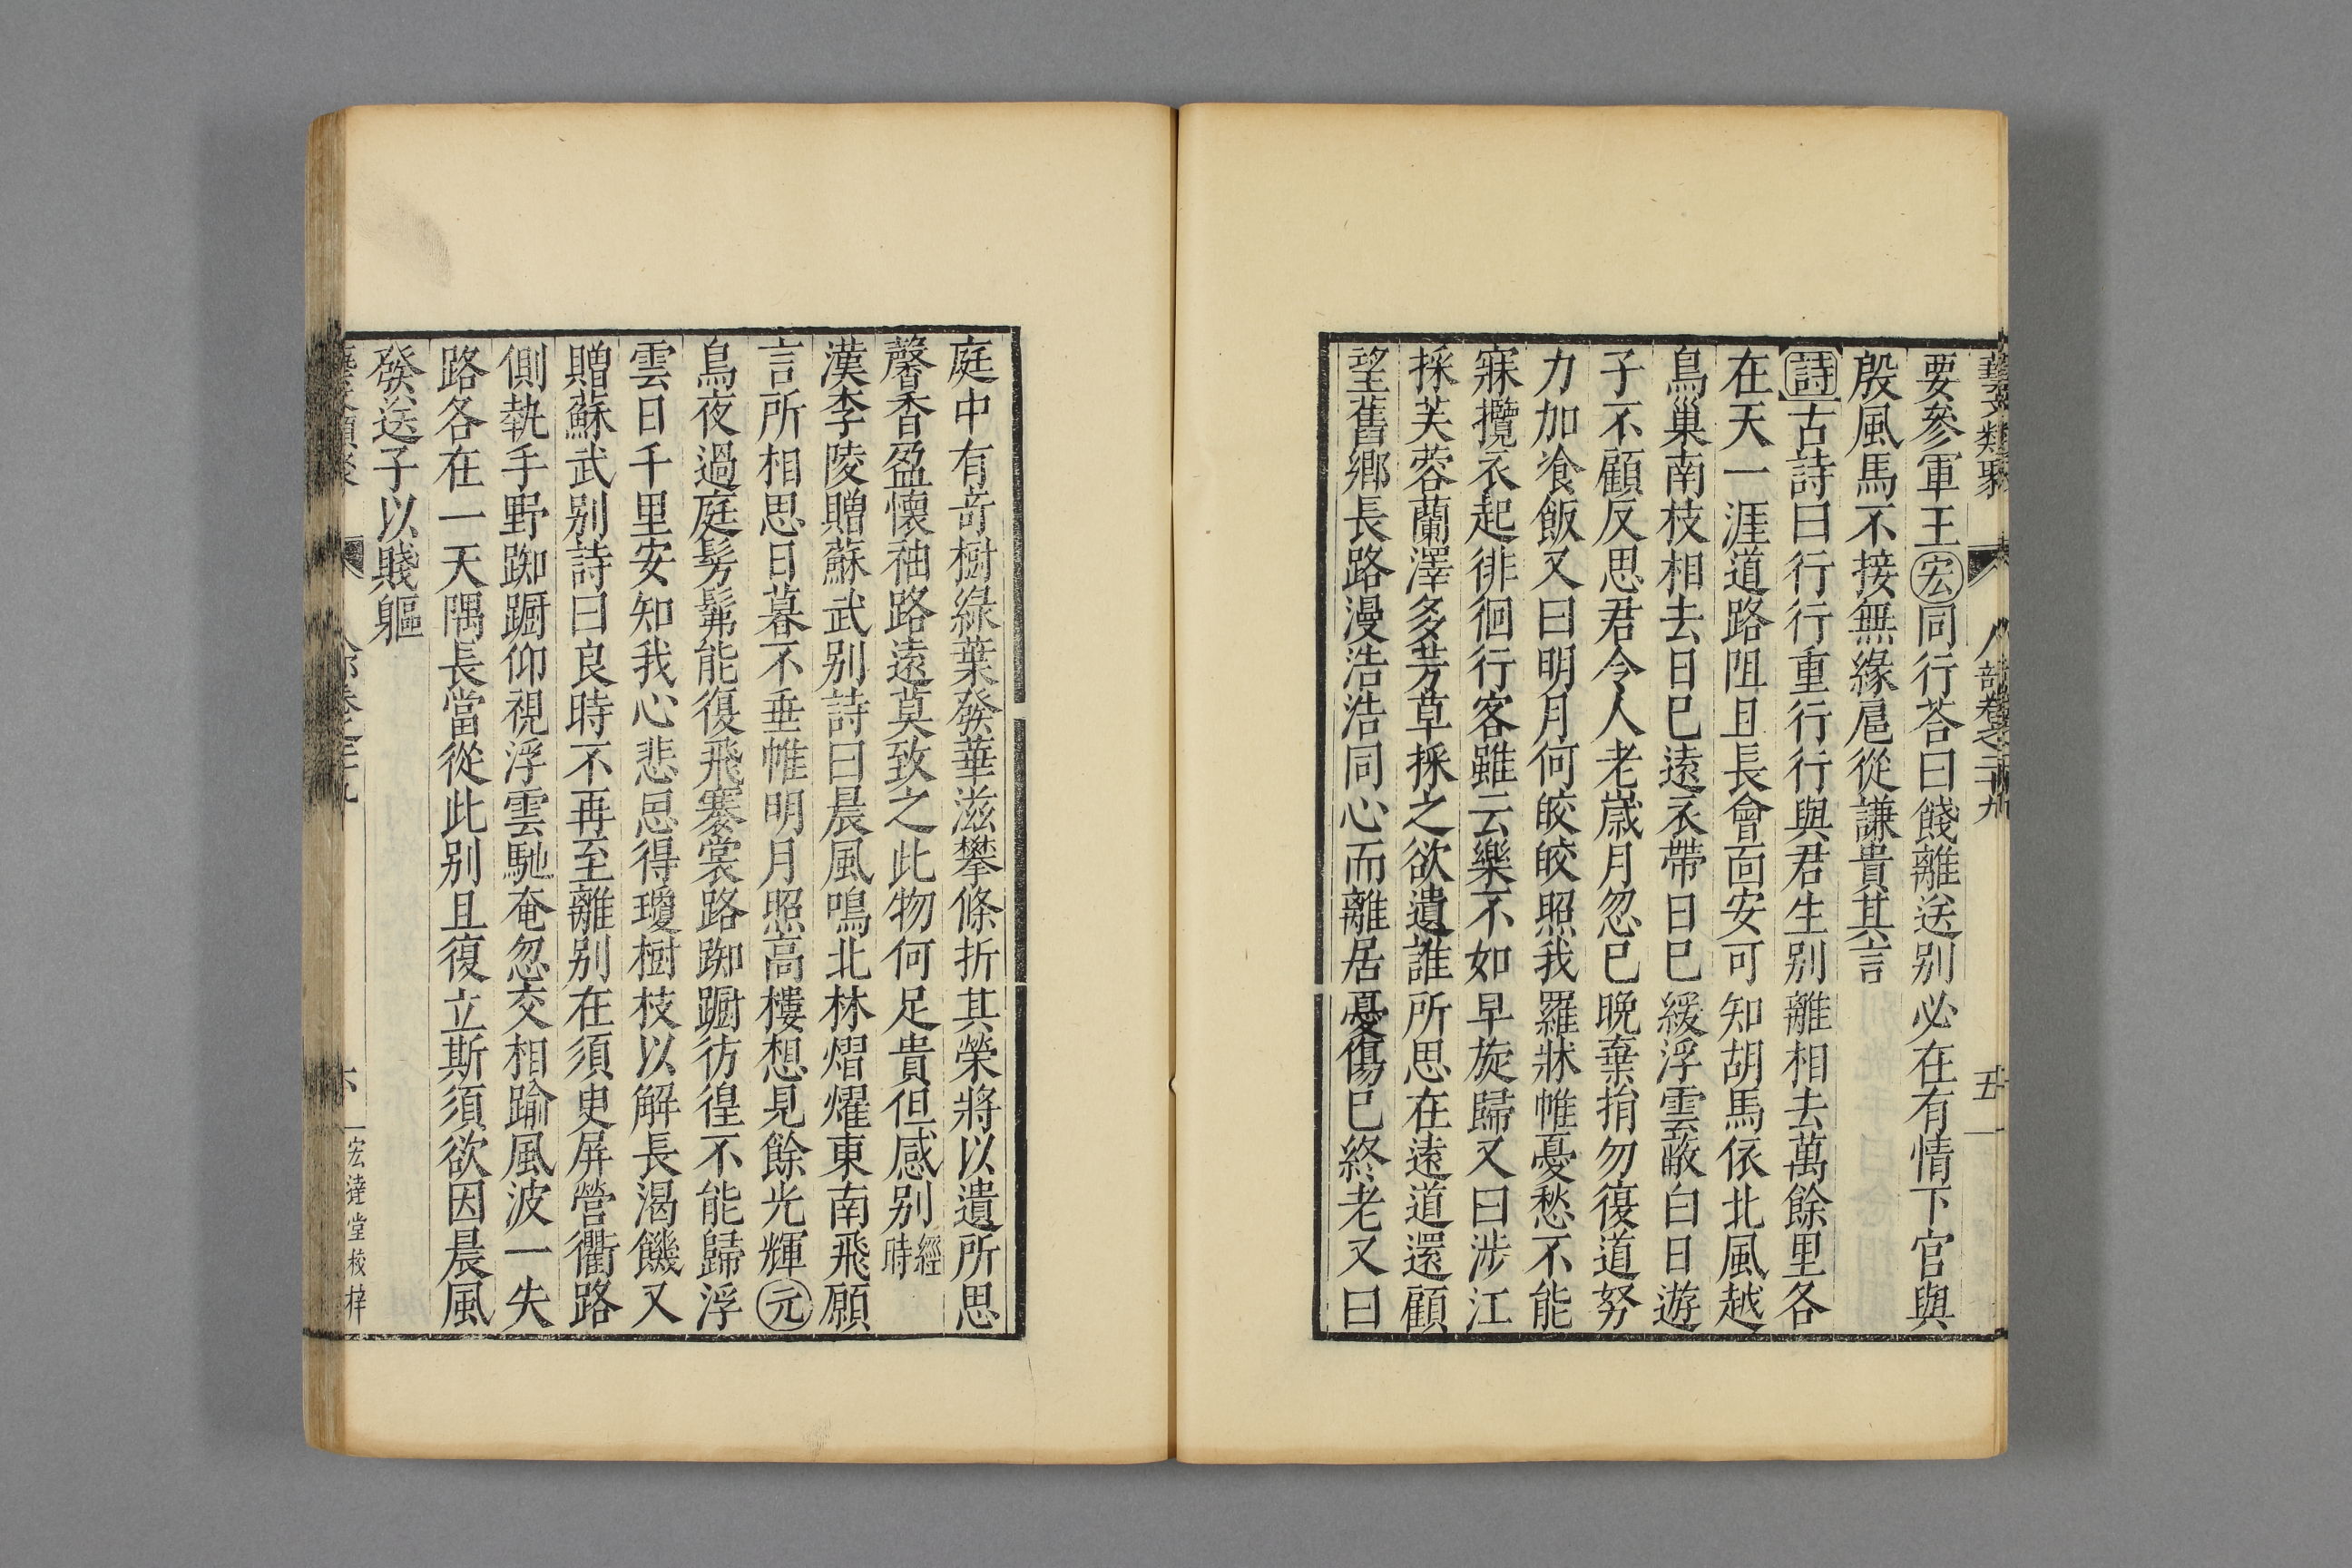 藝文類聚 人部卷之二十九 五
要參軍王宏同行荅曰餞離送别必在有情下官與
殷風馬不接無緣扈從謙貴其言
詩古詩曰行行重行行與君生别離相去萬餘里各
在天一涯道路阻且長會靣安可知胡馬依北風越
鳥巢南枝相去日已遠衣帶日已緩浮雲蔽白日遊
子不顧反思君令人老嵗月忽已晚棄捐勿復道努
力加飡飯又曰明月何皎皎照我羅牀帷憂愁不能
寐攬衣起徘徊行客雖云樂不如早旋歸又曰涉江
採芙蓉蘭澤多芳草採之欲遺誰所思在遠道還顧
望舊鄉長路漫浩浩同心而離居憂傷已終老又曰
庭中有竒樹綠葉發華滋攀條折其榮將以遺所思
馨香盈懷袖路遠莫致之此物何足貴但感别經時
漢李陵贈蘇武别詩曰晨風鳴北林熠燿東南飛願
言所相思日暮不垂帷明月照高樓想見餘光輝元
鳥夜過庭髣髴能復飛褰裳路踟蹰彷徨不能歸浮
雲日千里安知我心悲思得瓊樹枝以解長渴饑又
贈蘇武别詩曰良時不再至離别在須史屏營衢路
側執手野踟蹰仰視浮雲馳奄忽交相踰風波一失
路各在一天隅長當從此别且復立斯須欲因晨風
發送子以賤軀
藝文類聚 人部卷之二十九 六 宏達堂校梓